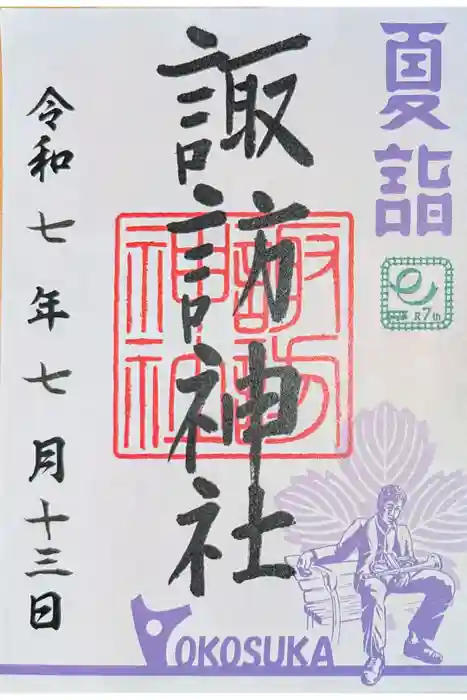 夏詣
R7th
諏訪神社
諏訪
神社
令和七年七月十三日
YOKOSUKA